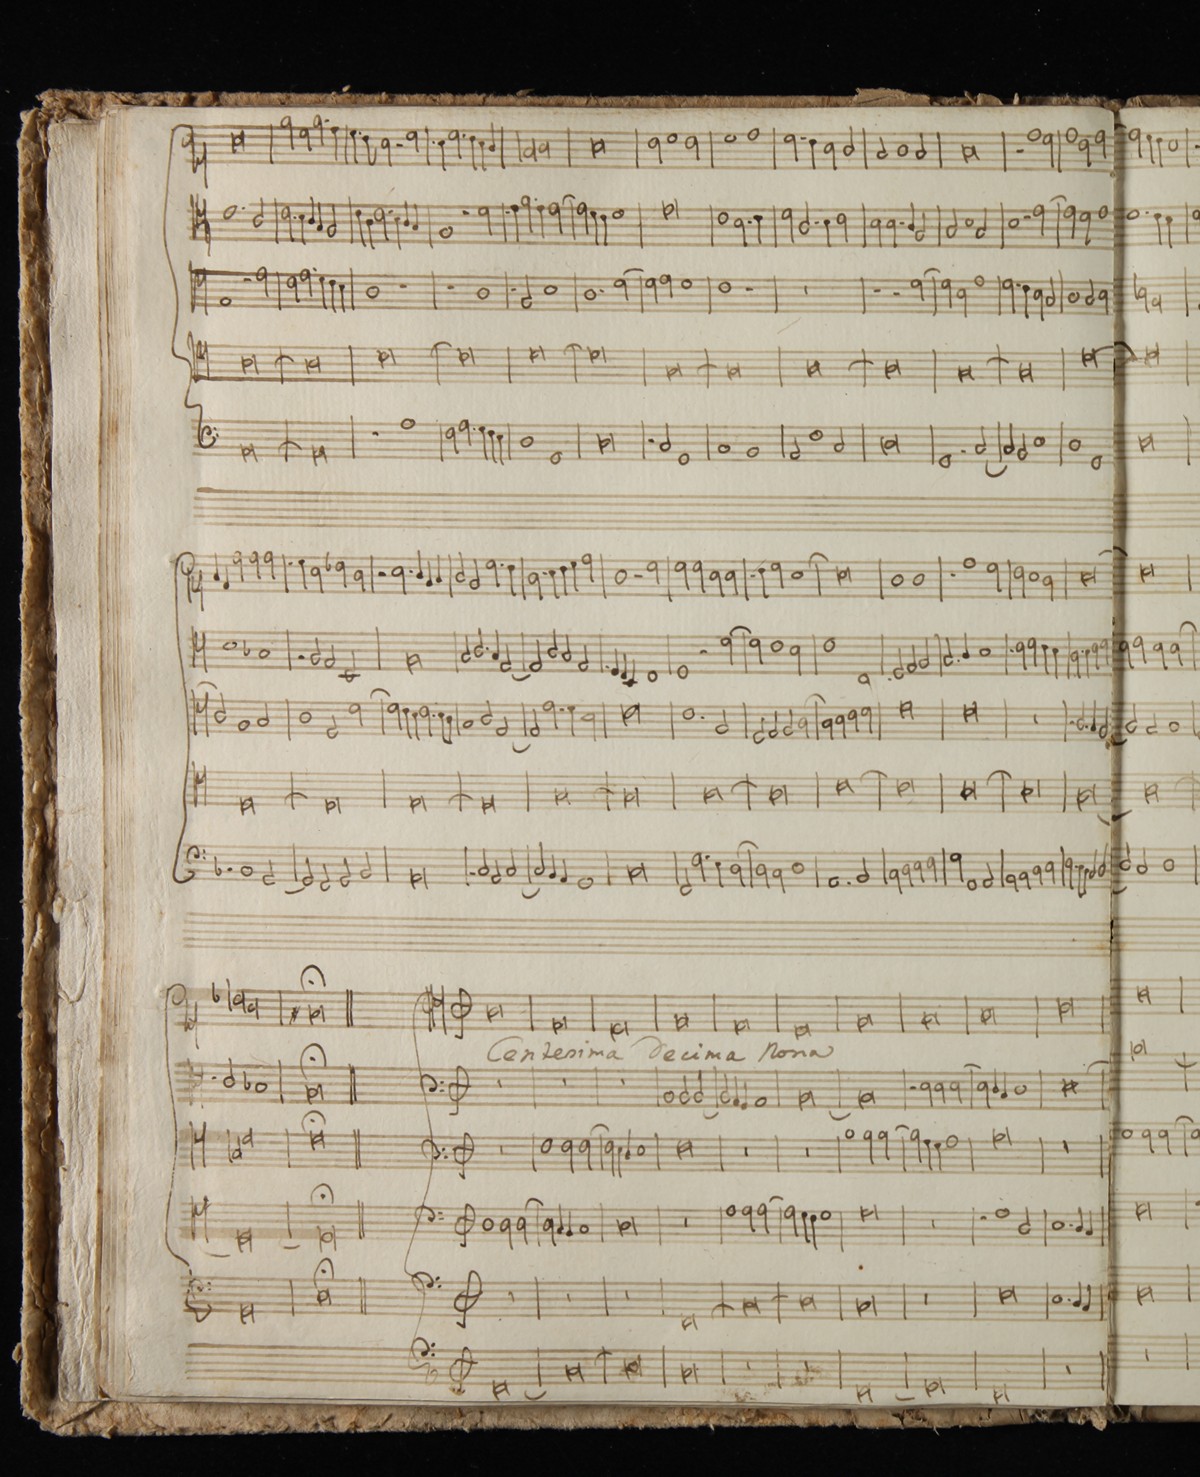 Centesima Decima Nona